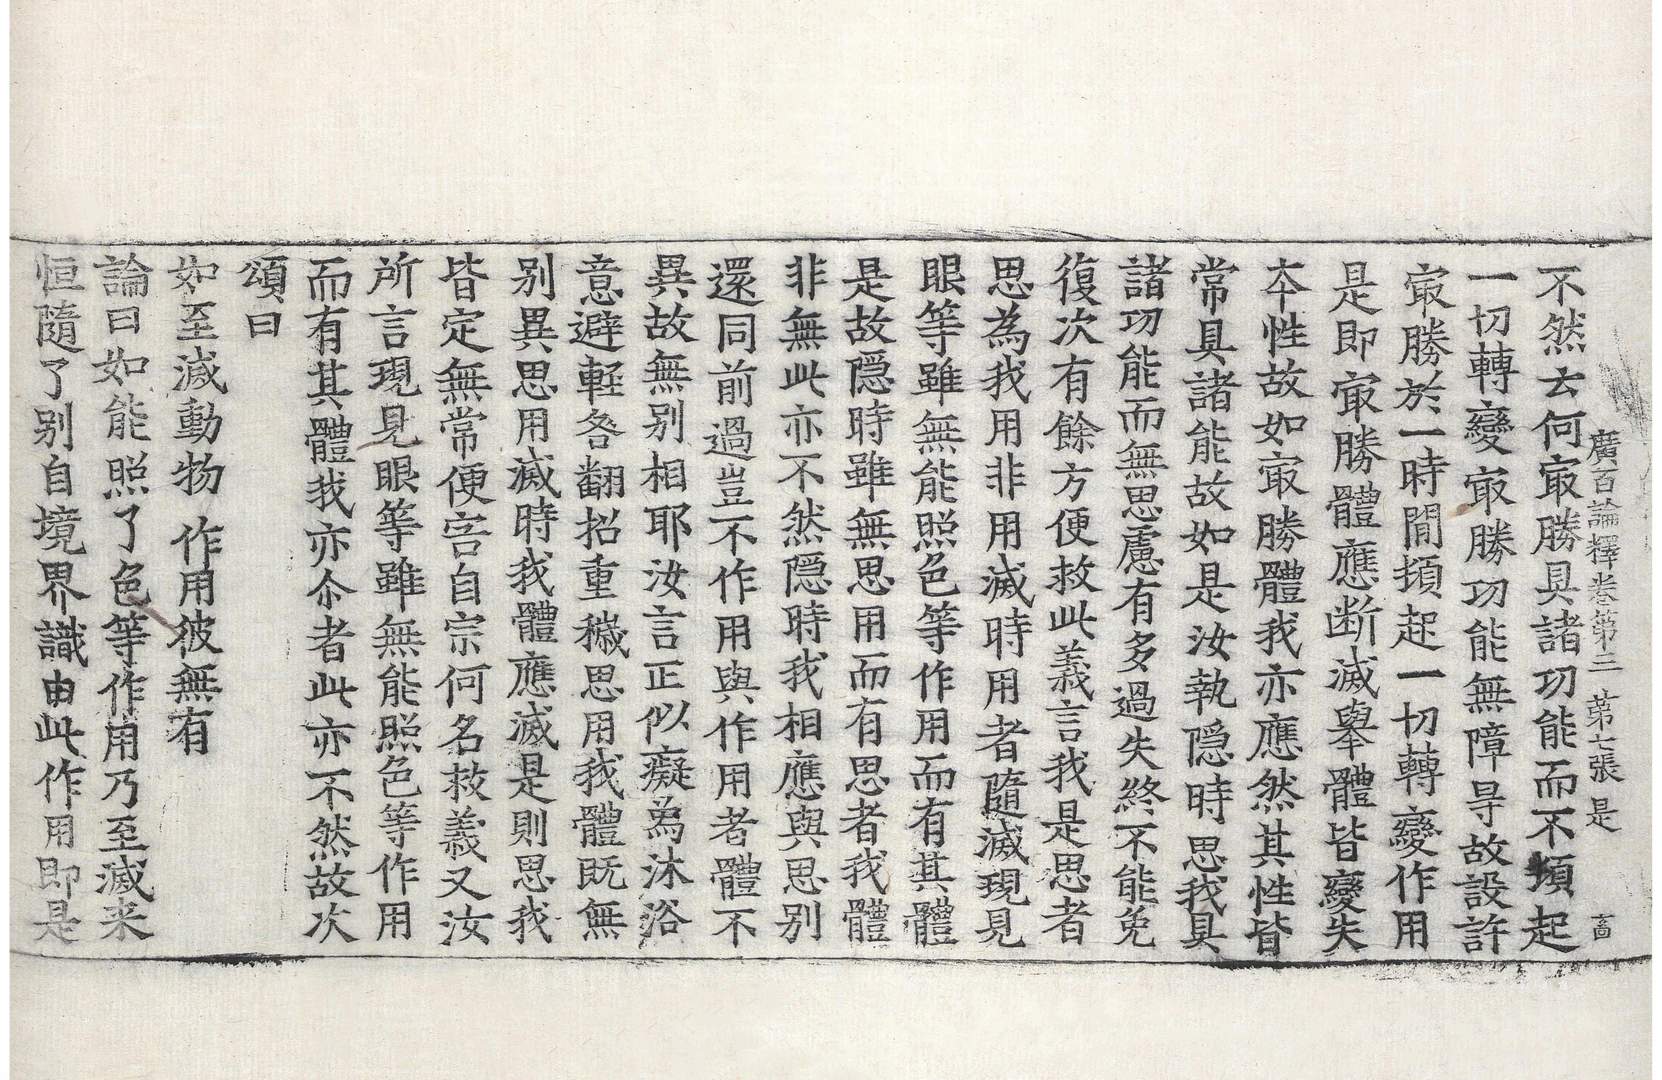 廣百論釋卷第三 第七張 是
不然云何㝡勝具諸功能而不頓起
一切轉變㝡勝功能無障㝵故設許
㝡勝於一時間頓起一切轉變作用
是即㝡勝體應断滅舉體皆變失
夲性故如㝡勝體我亦應然其性皆
常具諸能故如是汝執隱時思我具
諸功能而無思慮有多過失終不能免
復次有餘方便救此義言我是思者
思為我用非用滅時用者隨滅現見
眼等雖無能照色等作用而有其體
是故隱時雖無思用而有思者我體
非無此亦不然隱時我相應與思别
還同前過豈不作用與作用者體不
異故無别相耶汝言正似癡為沐浴
意避輕咎翻招重穢思用我體既無
别異思用滅時我體應滅是則思我
皆定無常便害自宗何名救義又汝
所言現見眼等雖無能照色等作用
而有其體我亦尒者此亦不然故次
頌曰
如至滅動物 作用彼無有
論曰如能照了色等作用乃至滅来
恒隨了别自境界識由此作用即是